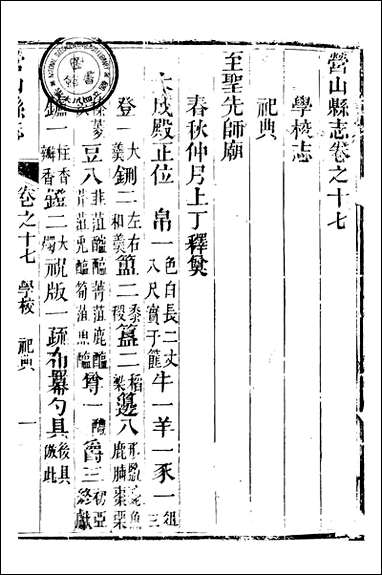 營山縣志卷之十七
學校志
祀典
至聖先師廟
春秋仲月上丁釋奠
大成殿正位 帛一色白長二丈八尺實于篚 牛一羊一豕一俎三
登一大羹 鉶二左右和羹 簠二黍稷 簋二稻粱 籩八形鹽 鹿脯棗栗
榛菱 豆八韭菹醓醢菁菹鹿醢芹菹兎醢筍菹魚醢 尊一醴 爵三初亞終獻
鑪一柱香瓣香 鐙二大燭 祝版一 疏布羃勺具後具倣此
營山縣志 卷之十七 學校 祀典 一